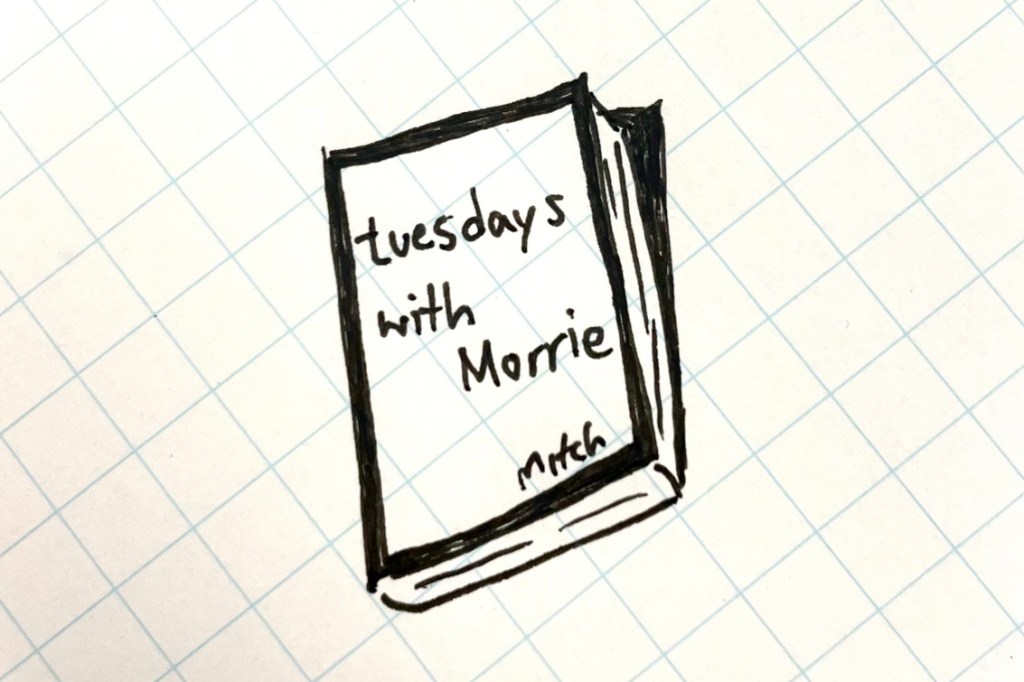 tuesdays
with
Morrie
Mitch